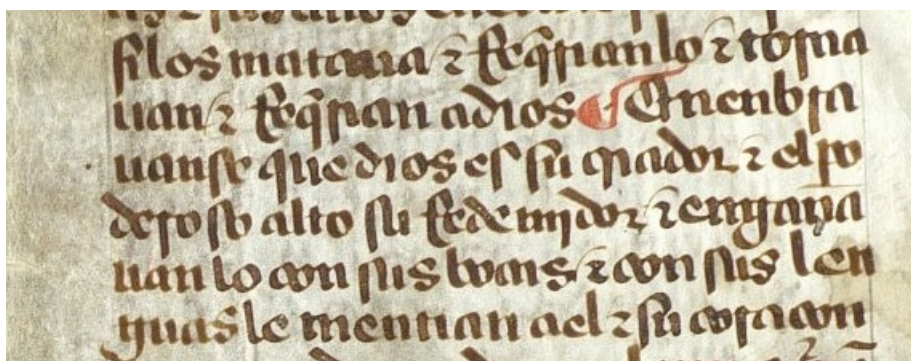 silos mataua ⁊ Req̃rianlo ⁊ torna
uan ⁊ Req̃rian adios ¶ Enenbra
uanse que dios es su criador ⁊ elpo
deroso alto su Redemidor ⁊ engaña
uan lo con sus bocas ⁊ con sus len
guas le mentian ael ⁊ su coracon